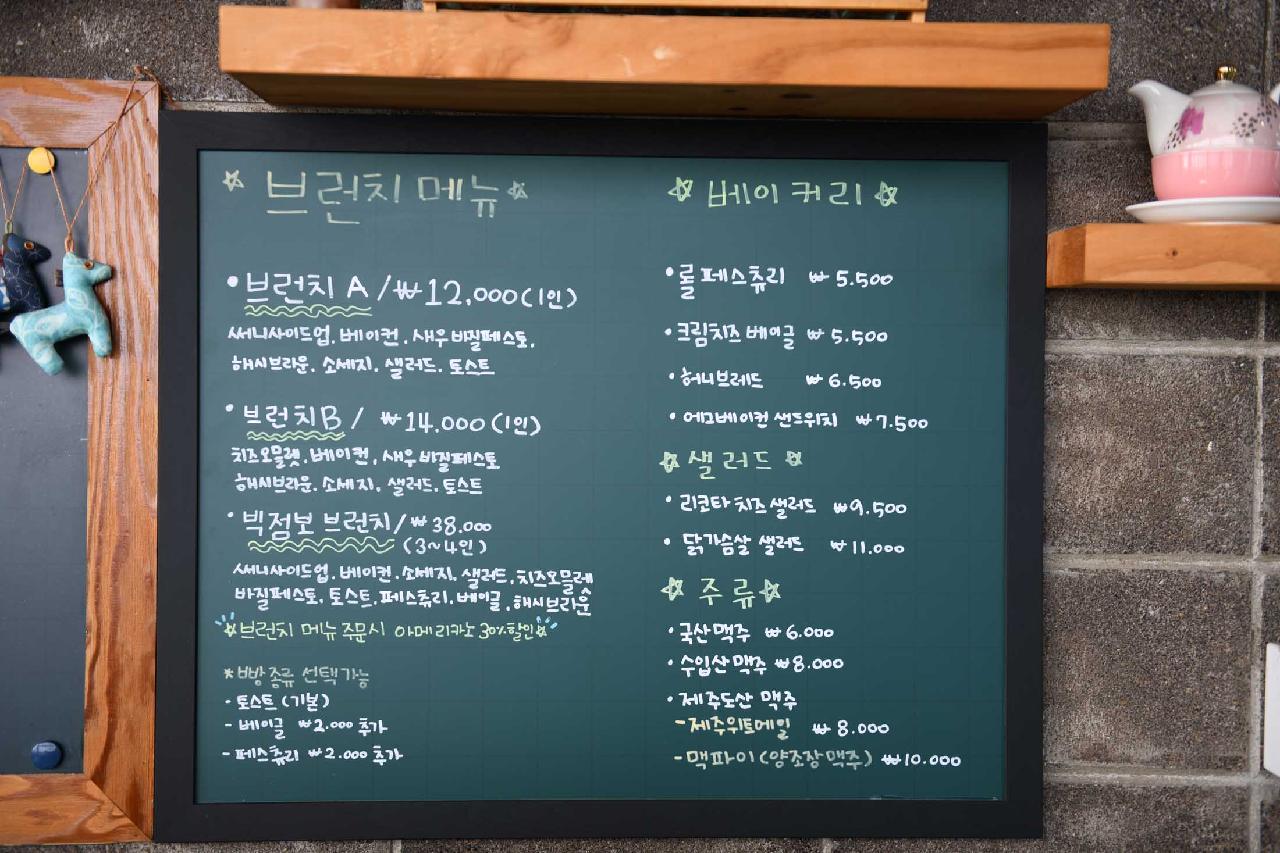 ☆ 브런치 메뉴 ☆
• 브런치 A / ₩12,000 (1인)
써니사이드업, 베이컨, 새우 바질페스토,
해시브라운, 소세지, 샐러드, 토스트
• 브런치 B / ₩14,000 (1인)
치즈오믈렛, 베이컨, 새우 바질페스토
해시브라운, 소세지, 샐러드, 토스트
• 빅점보 브런치 / ₩38.000
(3~4인)
써니사이드업, 베이컨, 소세지, 샐러드, 치즈오믈렛
바질페스토, 토스트, 페스츄리, 베이글, 해시브라운
☆브런치 메뉴 주문시 아메리카노 30% 할인☆
*빵 종류 선택가능
- 토스트 (기본)
- 베이글 ₩2.000 추가
- 페스츄리 ₩2.000 추가
☆ 베이커리 ☆
• 롤페스츄리 ₩5.500
• 크림치즈 베이글 ₩5.500
• 허니브레드 ₩6.500
• 에그베이컨 샌드위치 ₩7.500
☆ 샐러드 ☆
• 리코타 치즈 샐러드 ₩9.500
• 닭가슴살 샐러드 ₩11.000
☆ 주류 ☆
• 국산맥주 ₩6.000
• 수입산 맥주 ₩8.000
• 제주도산 맥주
- 제주위트에일 ₩8.000
- 맥파이 (양조장 맥주) ₩10.000